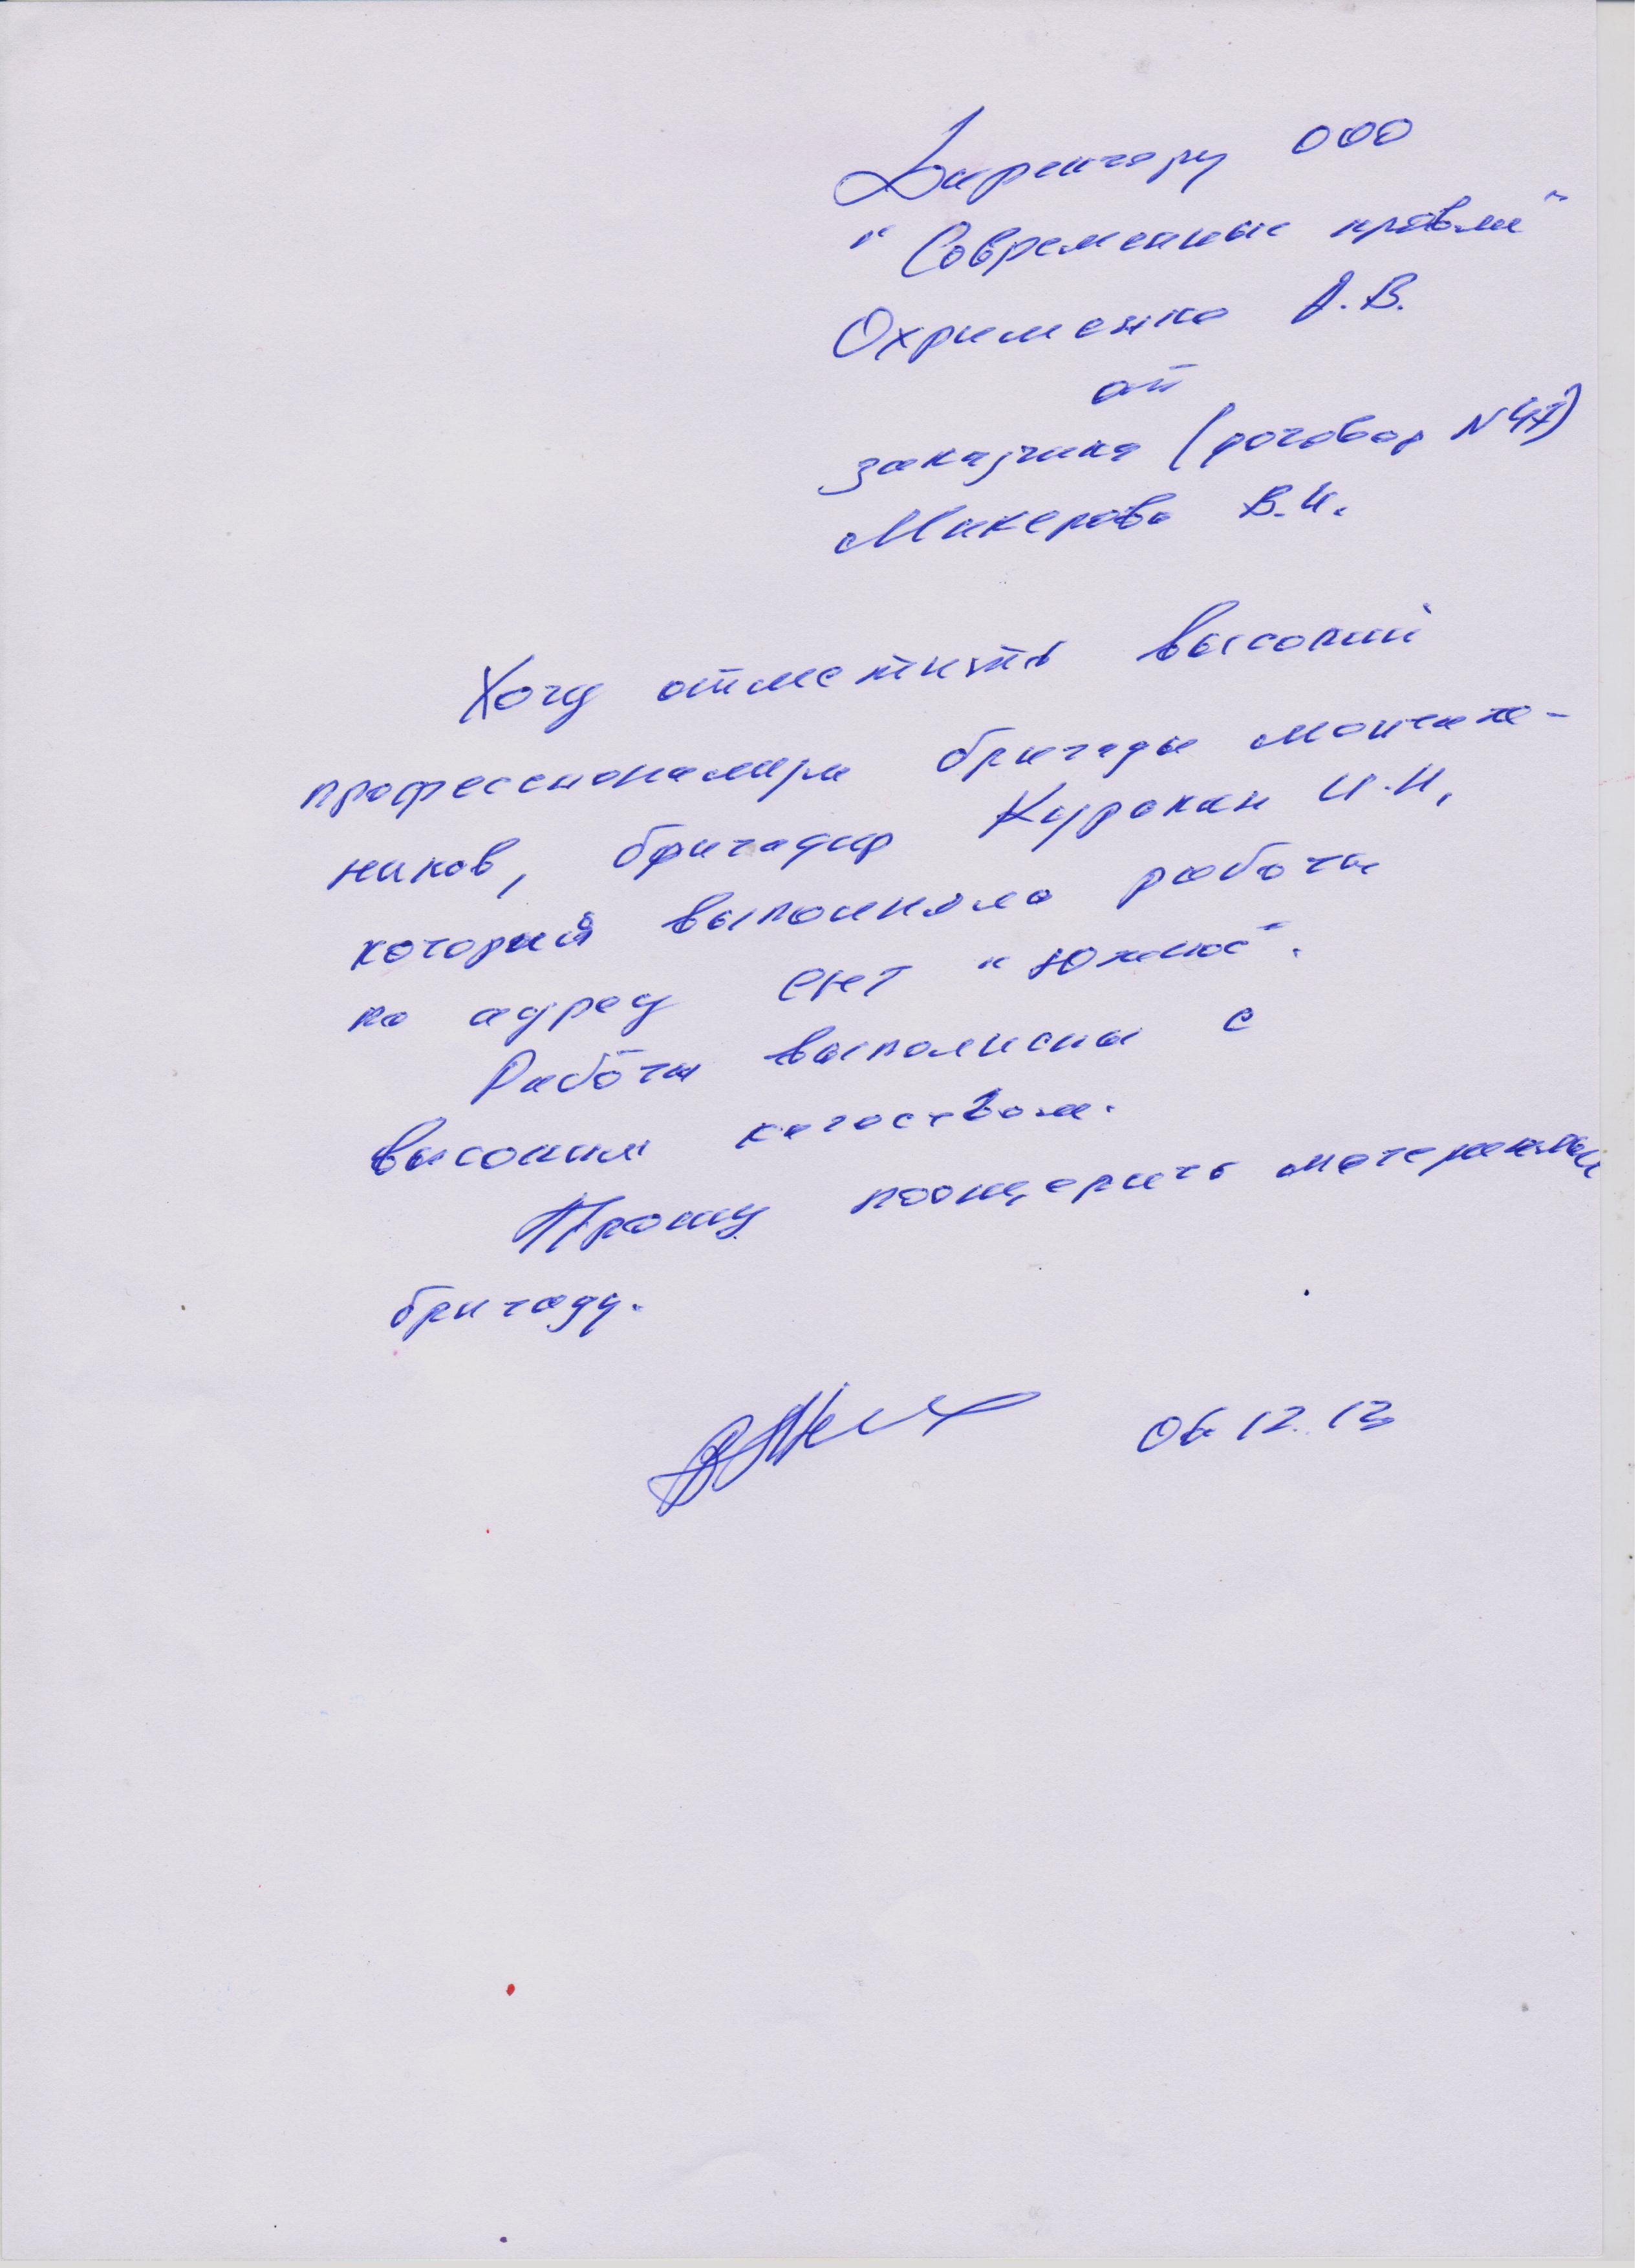 Директору ООО
"Современные кровли"
Охрименко А.В.
от
заказчика (договор N47)
Микерова В.И.
Хочу отметить высокий
профессионализм бригады монтаж-
ников, бригадир Курокан И.И,
который выполняла работы
по адресу СНТ "Южное".
Работы выполнены с
высоким качеством.
Прошу поощерить материально
бригаду.
06.12.13